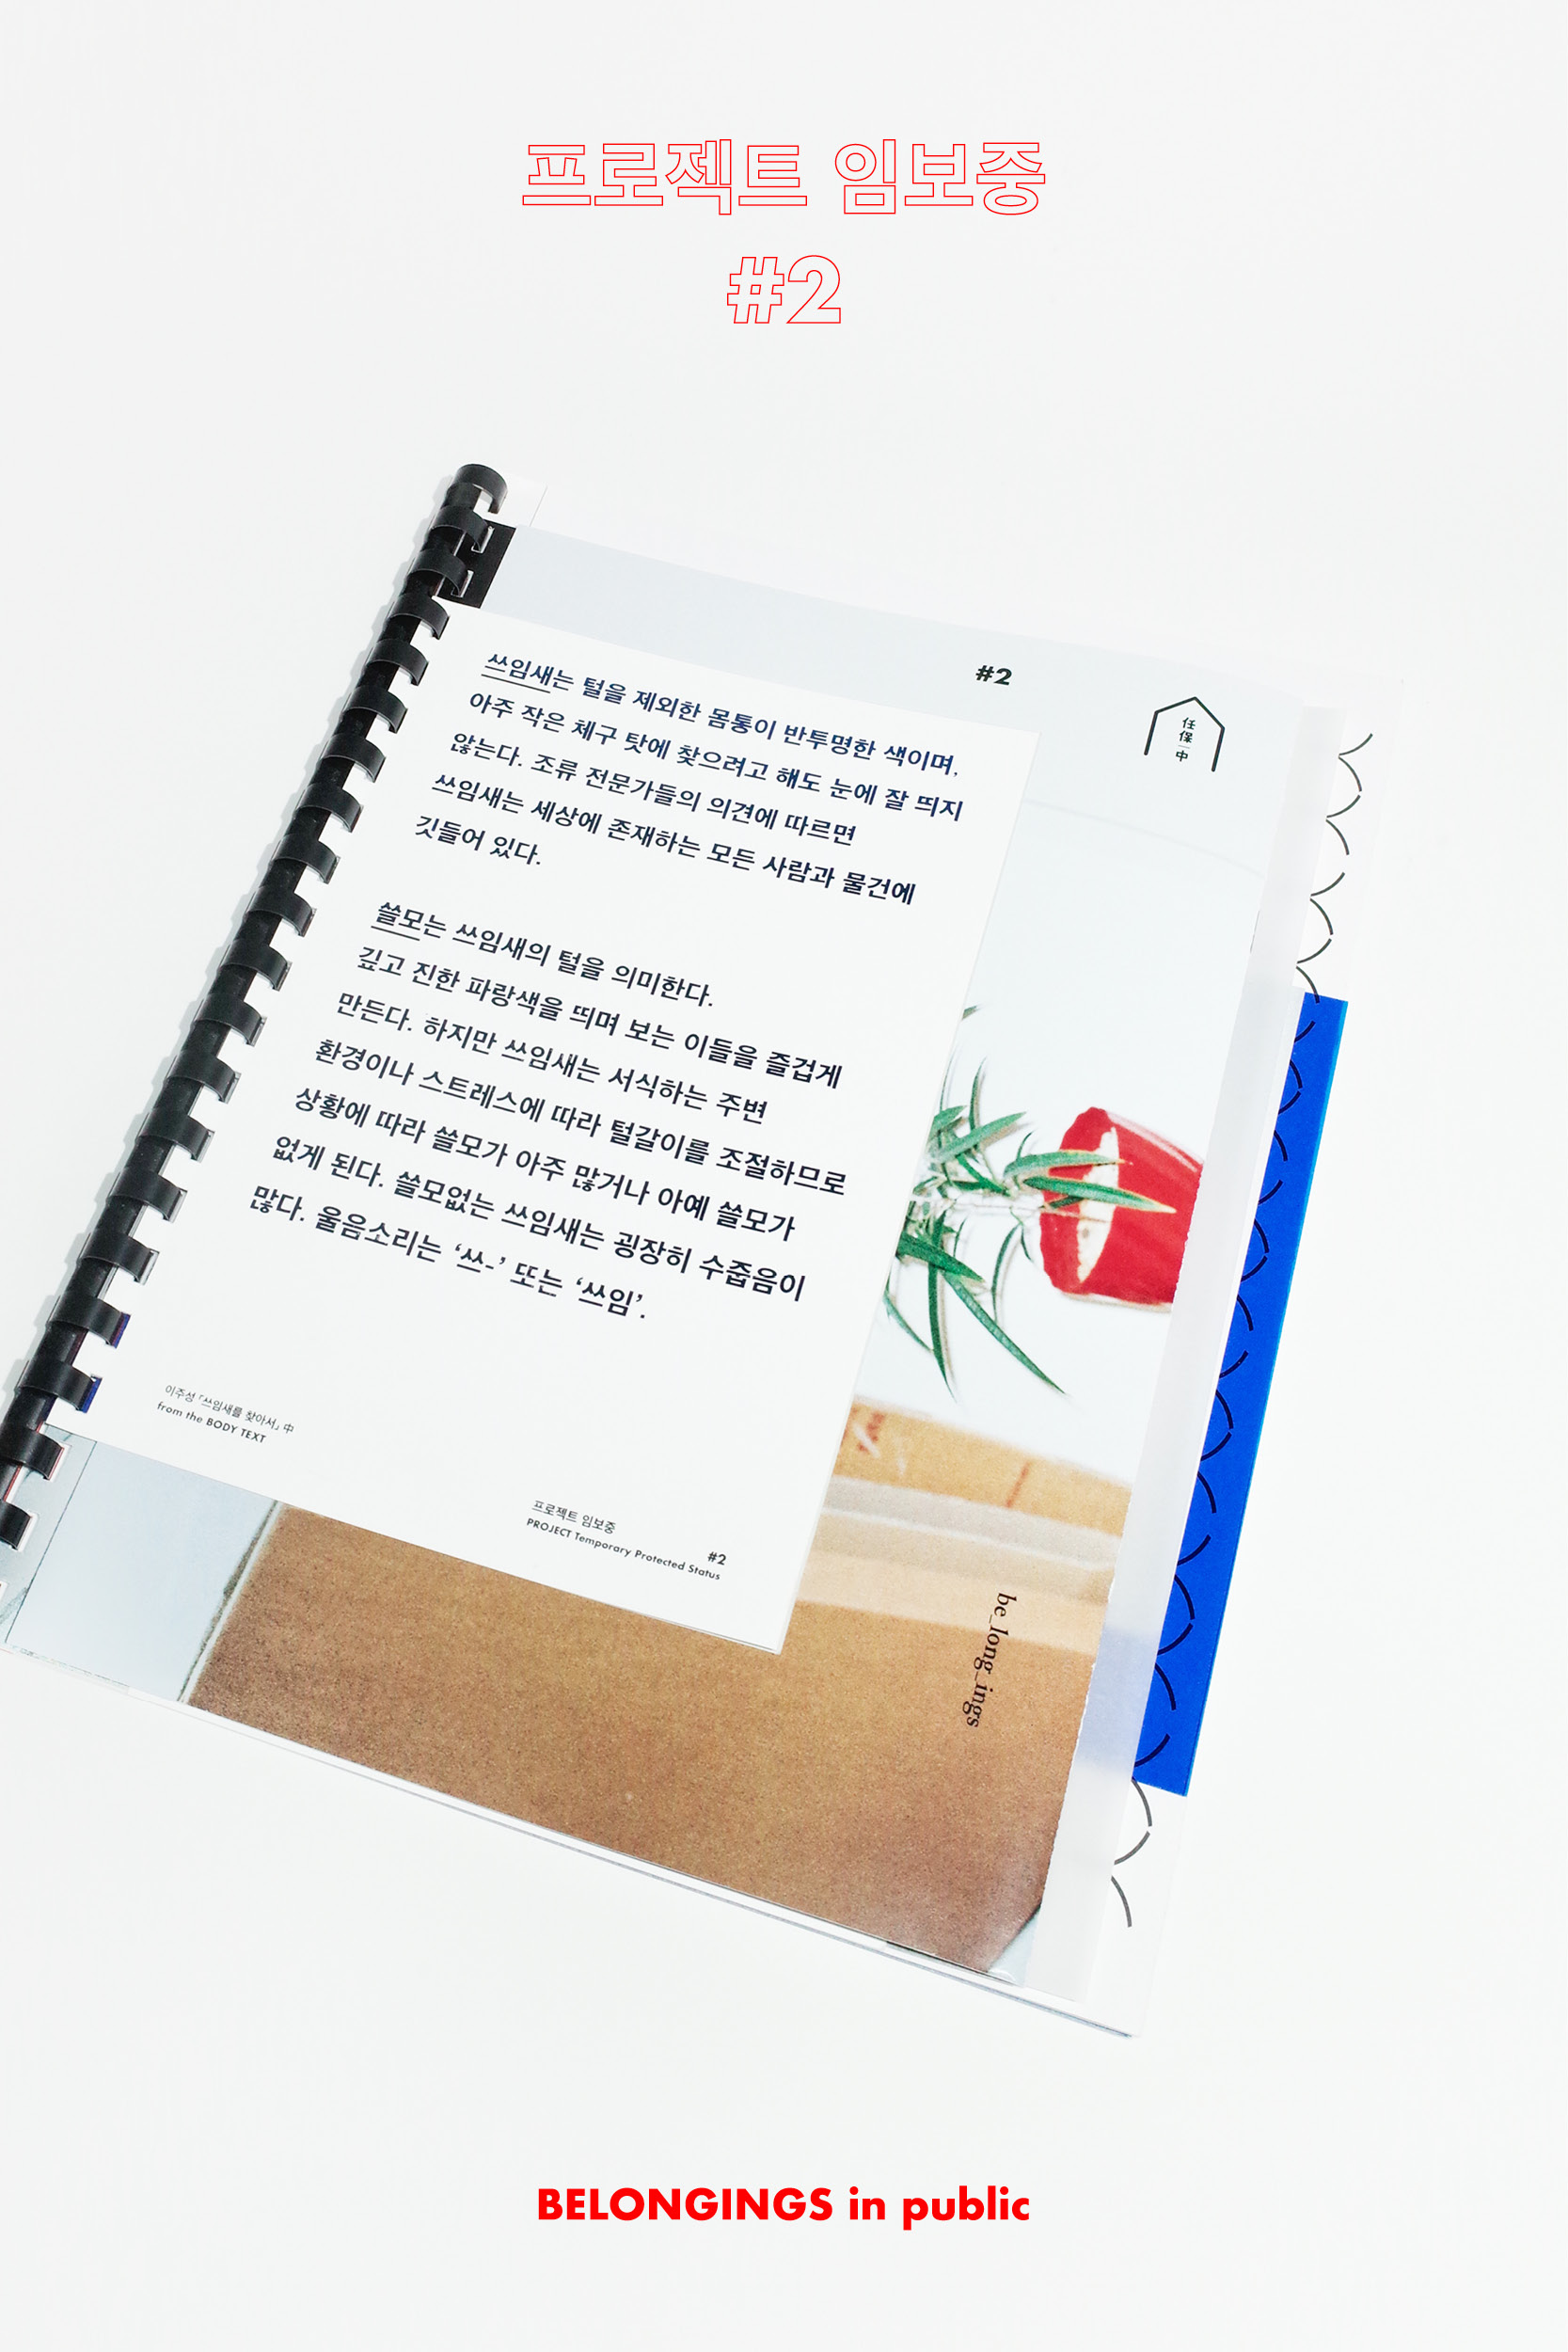 프로젝트 임보중
#2
#2
任
保
中
쓰임새는 털을 제외한 몸통이 반투명한 색이며,
아주 작은 체구 탓에 찾으려고 해도 눈에 잘 띄지
않는다. 조류 전문가들의 의견에 따르면
쓰임새는 세상에 존재하는 모든 사람과 물건에
깃들어 있다.
쓸모는 쓰임새의 털을 의미한다.
깊고 진한 파랑색을 띄며 보는 이들을 즐겁게
만든다. 하지만 쓰임새는 서식하는 주변
환경이나 스트레스에 따라 털갈이를 조절하므로
상황에 따라 쓸모가 아주 많거나 아예 쓸모가
없게 된다. 쓸모없는 쓰임새는 굉장히 수줍음이
많다. 울음소리는 ‘쓰-’ 또는 ‘쓰임’.
이주성 「쓰임새를 찾아서」 中
from the BODY TEXT
프로젝트 임보중
#2
PROJECT Temporary Protected Status
be_long_ings
BELONGINGS in public